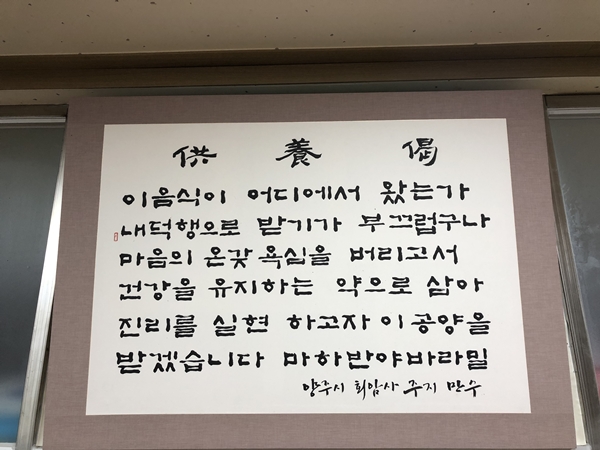 供養偈
이음식이 어디에서 왔는가
내덕행으로 받기가 부끄럽구나
마음의 온갖 욕심을 버리고서
건강을 유지하는 약으로 삼아
진리를 실현 하고자 이 공양을
받겠습니다 마하반야바라밀
양주시 회암사 주지 만수